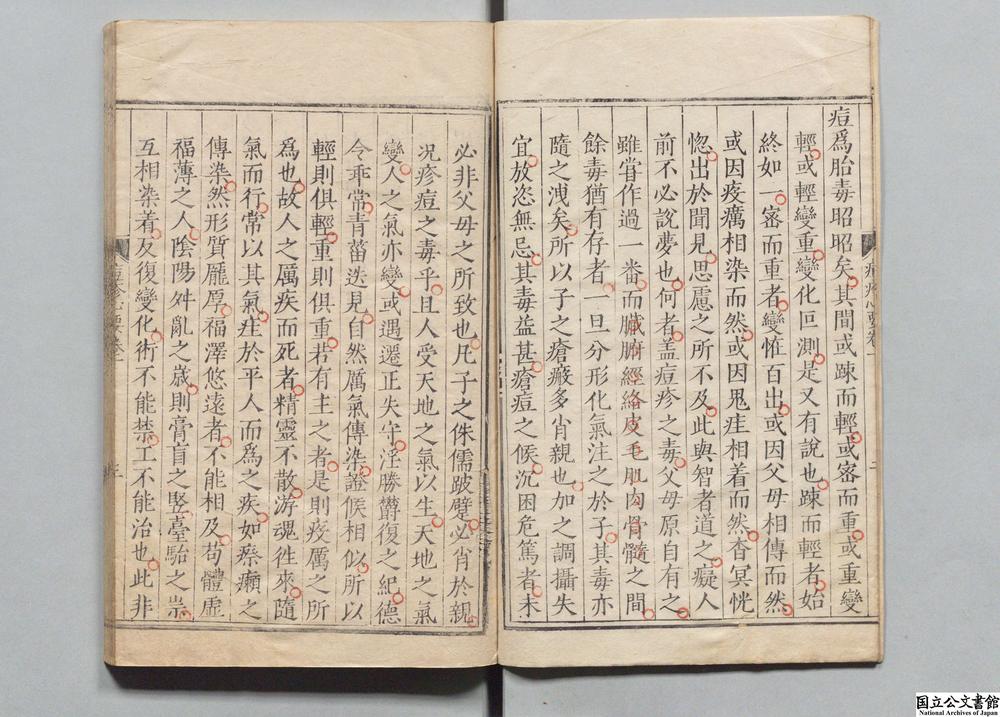 痘爲胎毒昭昭矣其間或踈而輕或密而重或重變
輕或輕變重變化叵測是又有說也踈而輕者始
終如一密而重者變恠百出或因父母相傳而然
或因疫癘相染而然或因鬼疰相着而然杳冥恍
惚出於聞見思慮之所不及此與智者道之癡人
前不必說夢也何者盖痘疹之毒父母原自有之
雖甞作過一番而臟腑經絡皮毛肌肉骨髓之間
餘毒猶有存者一旦分形化氣注之於子其毒亦
隨之洩矣所以子之瘡瘢多肖親也加之調攝失
宜放恣無忌其毒益甚瘡痘之候沉困危篤者未
必非父母之所致也凡子之侏儒跛躄必肖於親
况疹痘之毒乎且人受天地之氣以生天地之氣
變人之氣亦變或遇遷正失守淫勝欝復之紀德
令乖常青菑迭見自然厲氣傳染證候相似所以
輕則俱輕重則俱重若有主之者是則疫厲之所
爲也故人之厲疾而死者精靈不散游魂徃來隨
氣而行常以其氣疰於平人而爲之疾如瘵癩之
傳染然形質厖厚福澤悠遠者不能相及苟體虛
福薄之人陰陽舛亂之歲則膏肓之竪臺駘之祟
互相染着反復變化術不能禁工不能治也此非
国立公文書館
National Archives of Japan